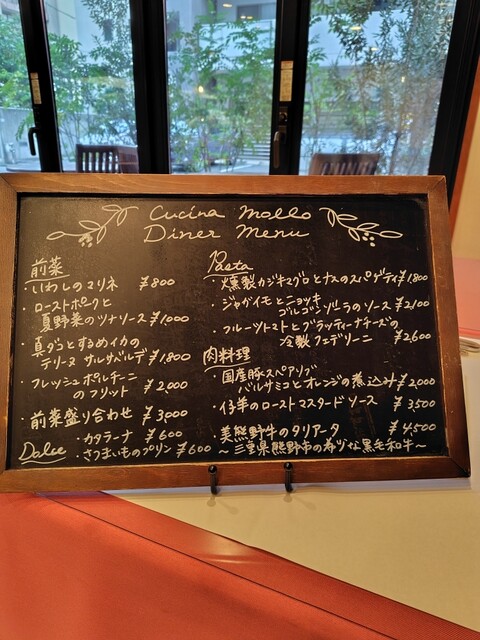 Cucina Mollo
Diner Menu
前菜
・いわしのマリネ ¥800
・ローストポークと
夏野菜のツナソース ¥1,000
・真ダコとするめイカの
テリーヌ サルサベルデ ¥1,800
・フレッシュポルチーニ
のフリット ¥2,000
・前菜盛り合わせ ¥3,000
Dolce
・カタラーナ ¥600
・さつまいものプリン ¥600
Pasta
・燻製カジキマグロとナスのスパゲティ ¥1,800
・ジャガイモとニョッキ
ゴルゴンゾーラのソース ¥2,100
・フルーツトマトとブラッティーナチーズの
冷製フェデリーニ ¥2,600
肉料理
・国産豚スペアリブ
バルサミコとオレンジの煮込み ¥2,000
・仔羊のローストマスタードソース ¥3,500
美熊野牛のタリアータ ¥4,500
～三重県熊野市の希少な黒毛和牛～